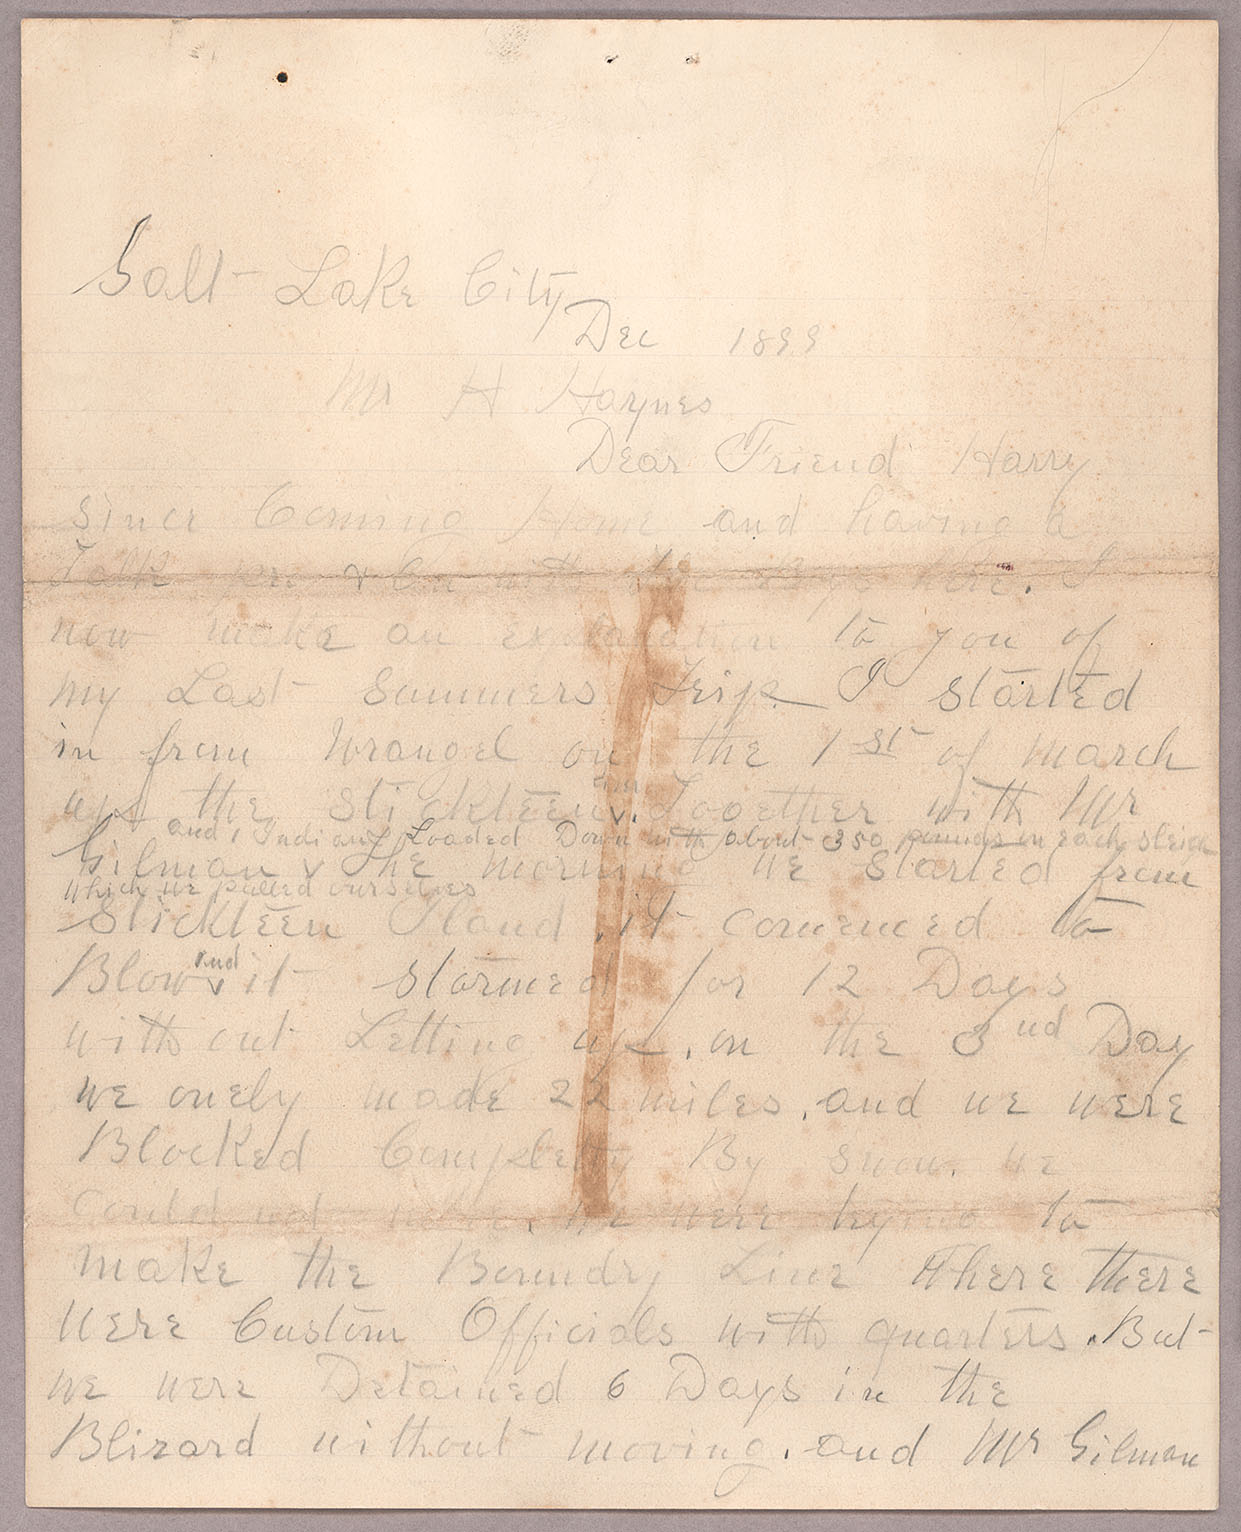 Salt Lake City
Dec 1899
Mr H Haynes
Dear Friend Harry
since Coming Home and having a
Talk with the Boys here. I
now make an explanation to you of
my Last Summers Trip I started
in from Wrangel on the 1st of march
up the Stickteen River Together with Mr
and, Indian, Loaded Down with about 350 pounds on each sleigh
Gilman v The morning we started from
which we pulled ourselves
Stickteen Iland, it comenced to
Blow and it stormed for 12 Days
without Letting up, on the 3nd Day
we onely made 22 miles, and we were
Blocked Completty By snow. we
could not move, we were trying to
make the Boundry Line Where there
were Custom Officials with quarters. But
we were Detained 6 Days in the
Blizard without moving, and Mr Gilman